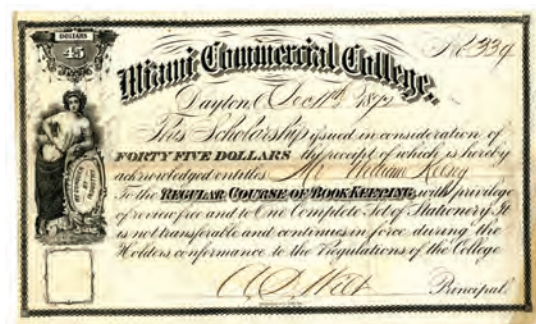 DOLLARS
45
No 339
Miami Commercial College,
Dayton, O. Dec 11th 1872
This Scholarship issued in consideration of
FORTY FIVE DOLLARS the receipt of which is hereby
acknowledged entitles Mr William
To the REGULAR COURSE OF BOOKKEEPING with privilege
of review free and to One Complete Set of Stationery. It
is not transferable and continues in force during the
Holders conformance to the Regulations of the College
A D Wilt Principal.